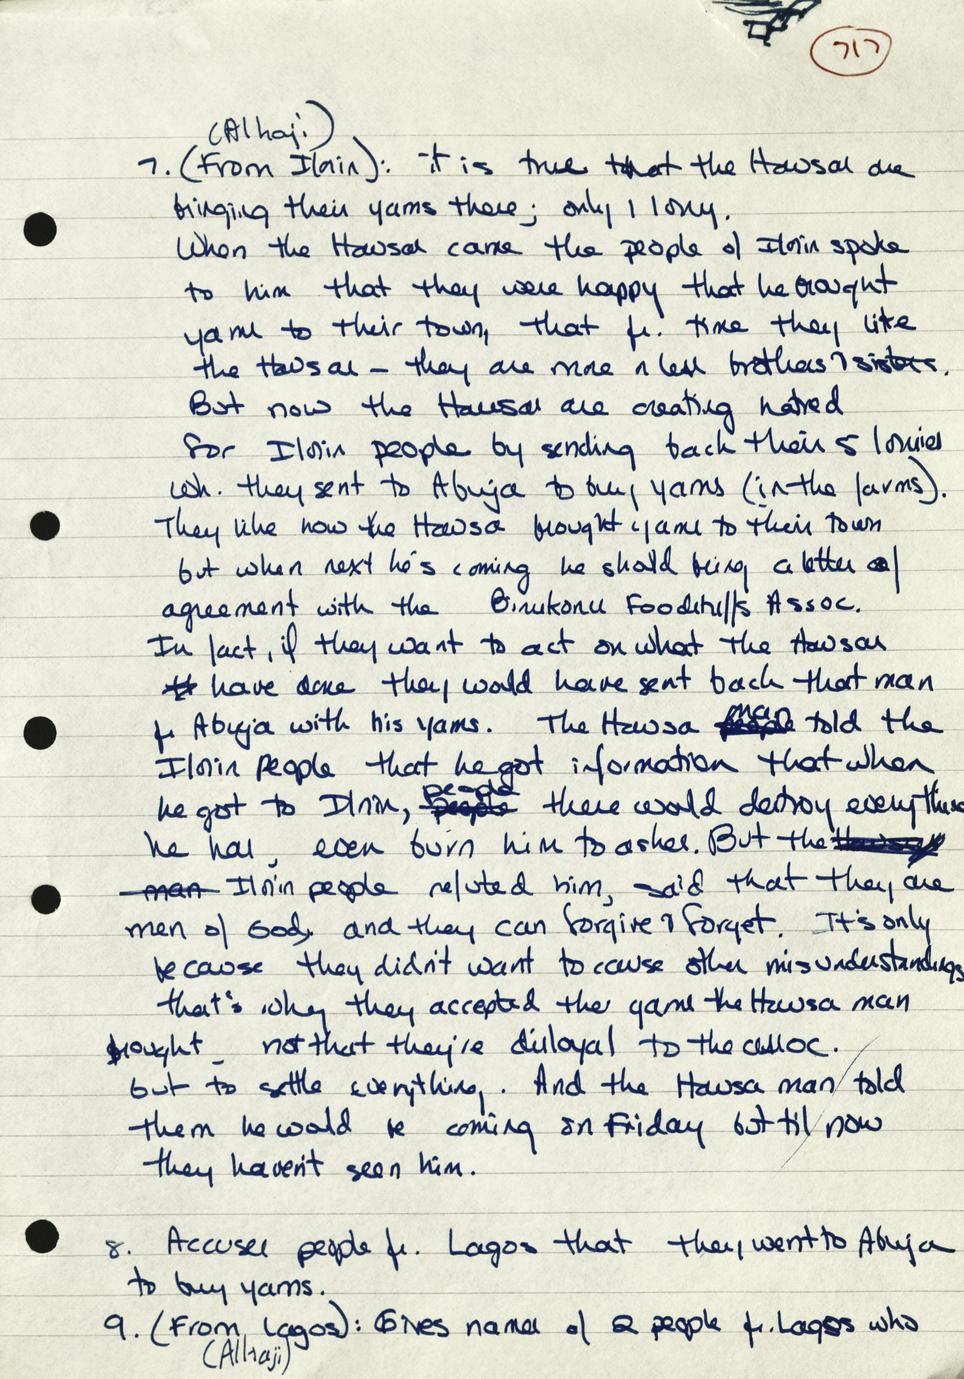 717
(Alhaji)
7. (From Ilorin): it is true that the Hawsas are
bringing their yams there; only 1 lorry.
When the Hawsas came the people of Ilorin spoke
to him that they were happy that he brought
yams to their town, that fr. time they like
the Hawsas – they are more n less brothers & sisters.
But now the Hausas are creating hatred
for Ilorin people by sending back their 5 lorries
wh. they sent to Abuja to buy yams (in the farms).
They like how the Hawsa brought yams to their town
but when next he's coming he should bring a letter of
agreement with the Foodstuffs Assoc.
In fact, if they want to act on what the Hawsas
have done they would have sent back that man
fr Abuja with his yams. The Hawsa man told the
Ilorin people that he got information that when
he got to Ilorin, people there would destroy everything
he has, even burn him to ashes. But the Hawsa
man Ilorin people refuted him, said that they are
men of God, and they can forgive & forget. It's only
because they didn't want to cause other misunderstandings
that's why they accepted the yams the Hawsa man
brought – not that they're disloyal to the assoc.
but to settle everything. And the Hawsa man told
them he would be coming on Friday but til now
they haven't seen him.
8. Accuses people fr. Lagos that they went to Abuja
to buy yams.
9. (From Lagos): Gives names of 2 people fr. Lagos who
(Alhaji)